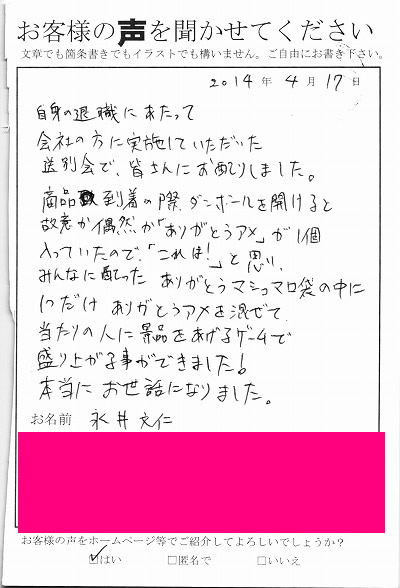 お客様の声を聞かせてください
文章でも箇条書きでもイラストでも構いません。ご自由にお書き下さい。
2014年 4月 17日
自身の退職にあたって
会社の方に実施していただいた
送別会で、皆さんにお配りしました。
商品到着の際、ダンボールを開けると
故意か偶然か「ありがとうアメ」が1個
入っていたので、「これは!」と思い、
みんなに配った ありがとうマシュマロ袋の中に
1つだけ ありがとうアメを混ぜて、
当たりの人に景品をあげるゲームで
盛り上がる事ができました!
本当にお世話になりました。
お名前 永井文仁
お客様の声をホームページ等でご紹介してよろしいでしょうか?
☑はい □匿名で □いいえ